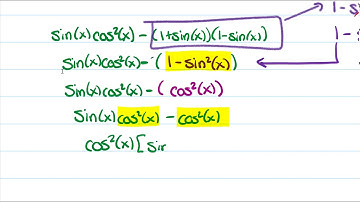 1 - si
sin(x)cos²(x) - (1+sin(x))(1-sin(x))
1 -
sin(x)cos²(x) - (1-sin²(x))
sin(x)cos²(x) - (cos²(x))
sin(x)cos²(x) - cos²(x)
cos²(x)[sin